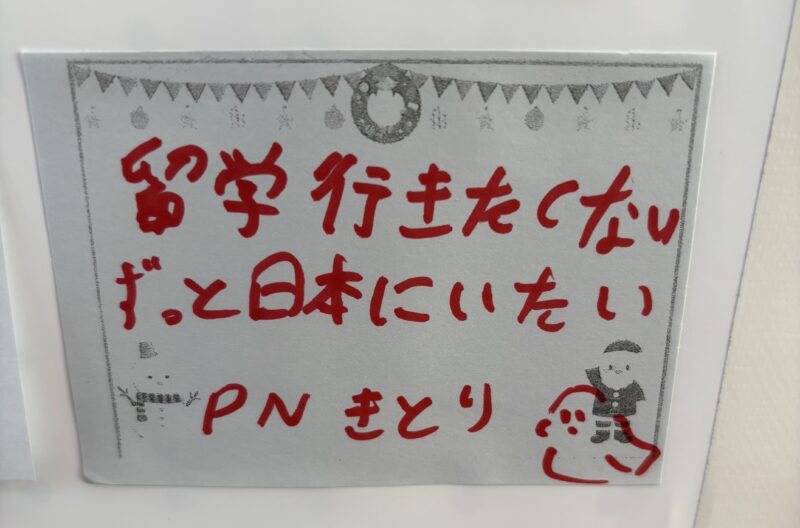 留学行きたくない
ずっと日本にいたい
PN きとり